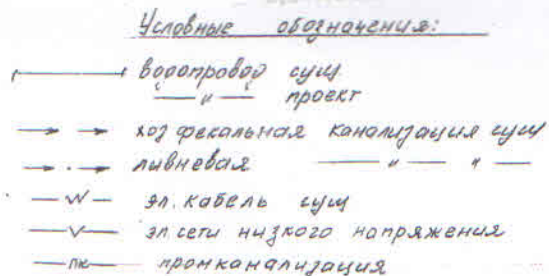 Условные обозначения:
водопровод сущ.
—— " —— проект
хоз фекальная канализация сущ
ливневая —— " —— " ——
W эл. кабель сущ
V эл сети низкого напряжения
ПК промканализация